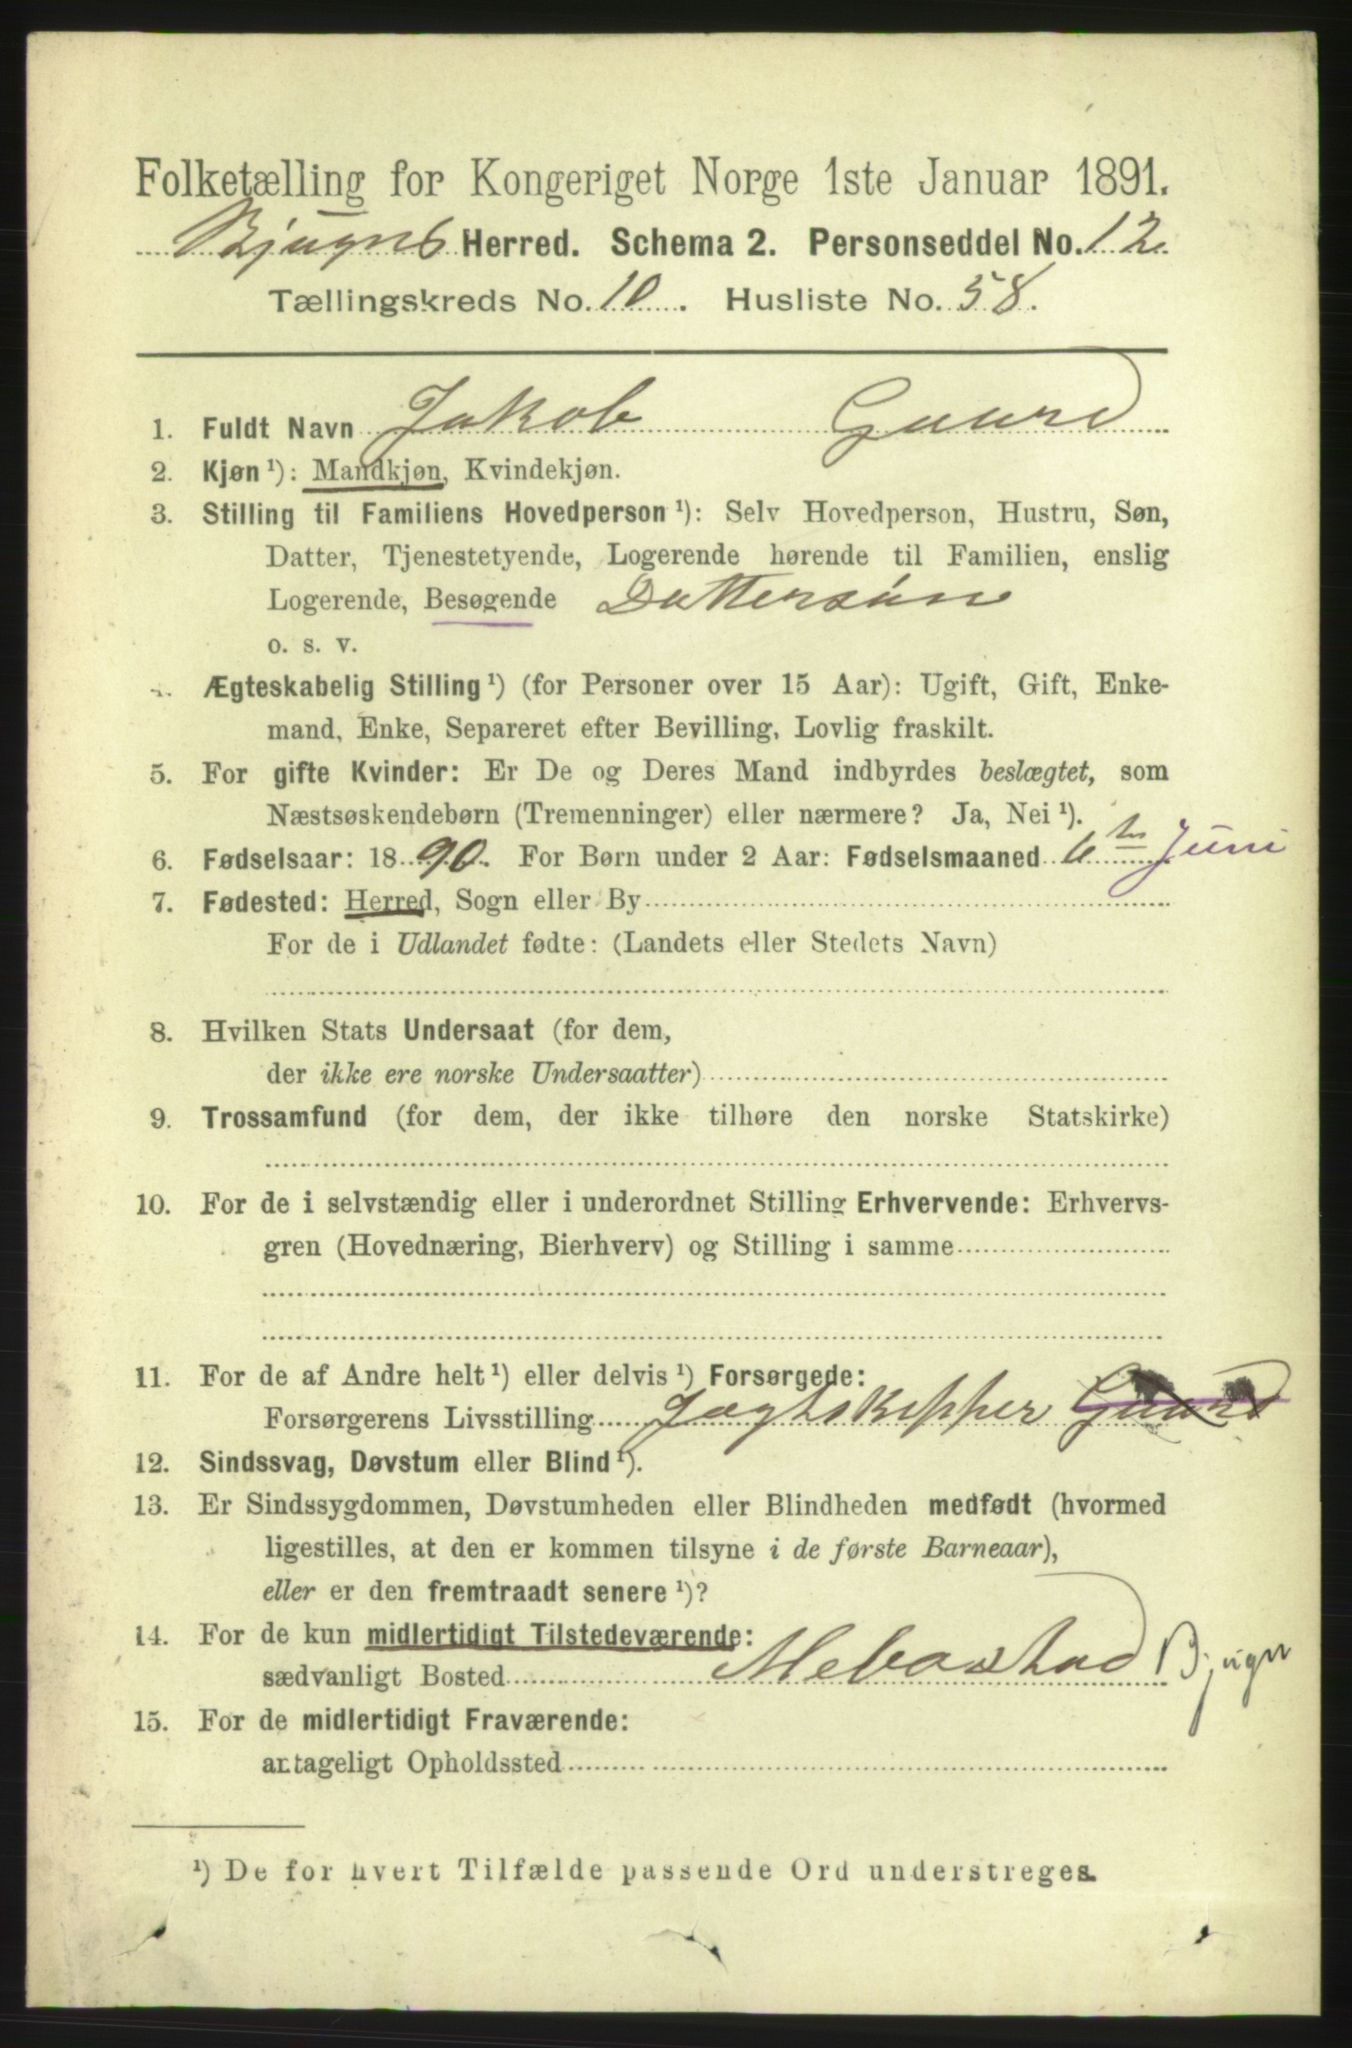 Folketælling for Kongeriget Norge 1ste Januar 1891.
Bjugns Herred. Schema 2. Personseddel No. 12.
Tællingskreds No. 10. Husliste No. 58.
1. Fuldt Navn Jakob Gaard
2. Kjøn ¹): Mandkjøn, Kvindekjøn.
3. Stilling til Familiens Hovedperson ¹): Selv Hovedperson, Hustru, Søn,
Datter, Tjenestetyende, Logerende hørende til Familien, enslig
Logerende, Besøgende Dattersøn
o. s. v.
4. Ægteskabelig Stilling ¹) (for Personer over 15 Aar): Ugift, Gift, Enke-
mand, Enke, Separeret efter Bevilling, Lovlig fraskilt.
5. For gifte Kvinder: Er De og Deres Mand indbyrdes beslægtet, som
Næstsøskendebørn (Tremenninger) eller nærmere? Ja, Nei ¹).
6. Fødselsaar: 1890. For Børn under 2 Aar: Fødselsmaaned 6te Juni
7. Fødested: Herred, Sogn eller By
For de i Udlandet fødte: (Landets eller Stedets Navn)
8. Hvilken Stats Undersaat (for dem,
der ikke ere norske Undersaatter)
9. Trossamfund (for dem, der ikke tilhøre den norske Statskirke)
10. For de i selvstændig eller i underordnet Stilling Erhvervende: Erhvervs-
gren (Hovednæring, Bierhverv) og Stilling i samme
11. For de af Andre helt ¹) eller delvis ¹) Forsørgede:
Forsørgerens Livsstilling Jagtskipper Gaard
12. Sindssvag, Døvstum eller Blind ¹).
13. Er Sindssygdommen, Døvstumheden eller Blindheden medfødt (hvormed
ligestilles, at den er kommen tilsyne i de første Barneaar),
eller er den fremtraadt senere ¹)?
14. For de kun midlertidigt Tilstedeværende:
sædvanligt Bosted Mebostad Bjugn
15. For de midlertidigt Fraværende:
antageligt Opholdssted
¹) De for hvert Tilfælde passende Ord understreges.